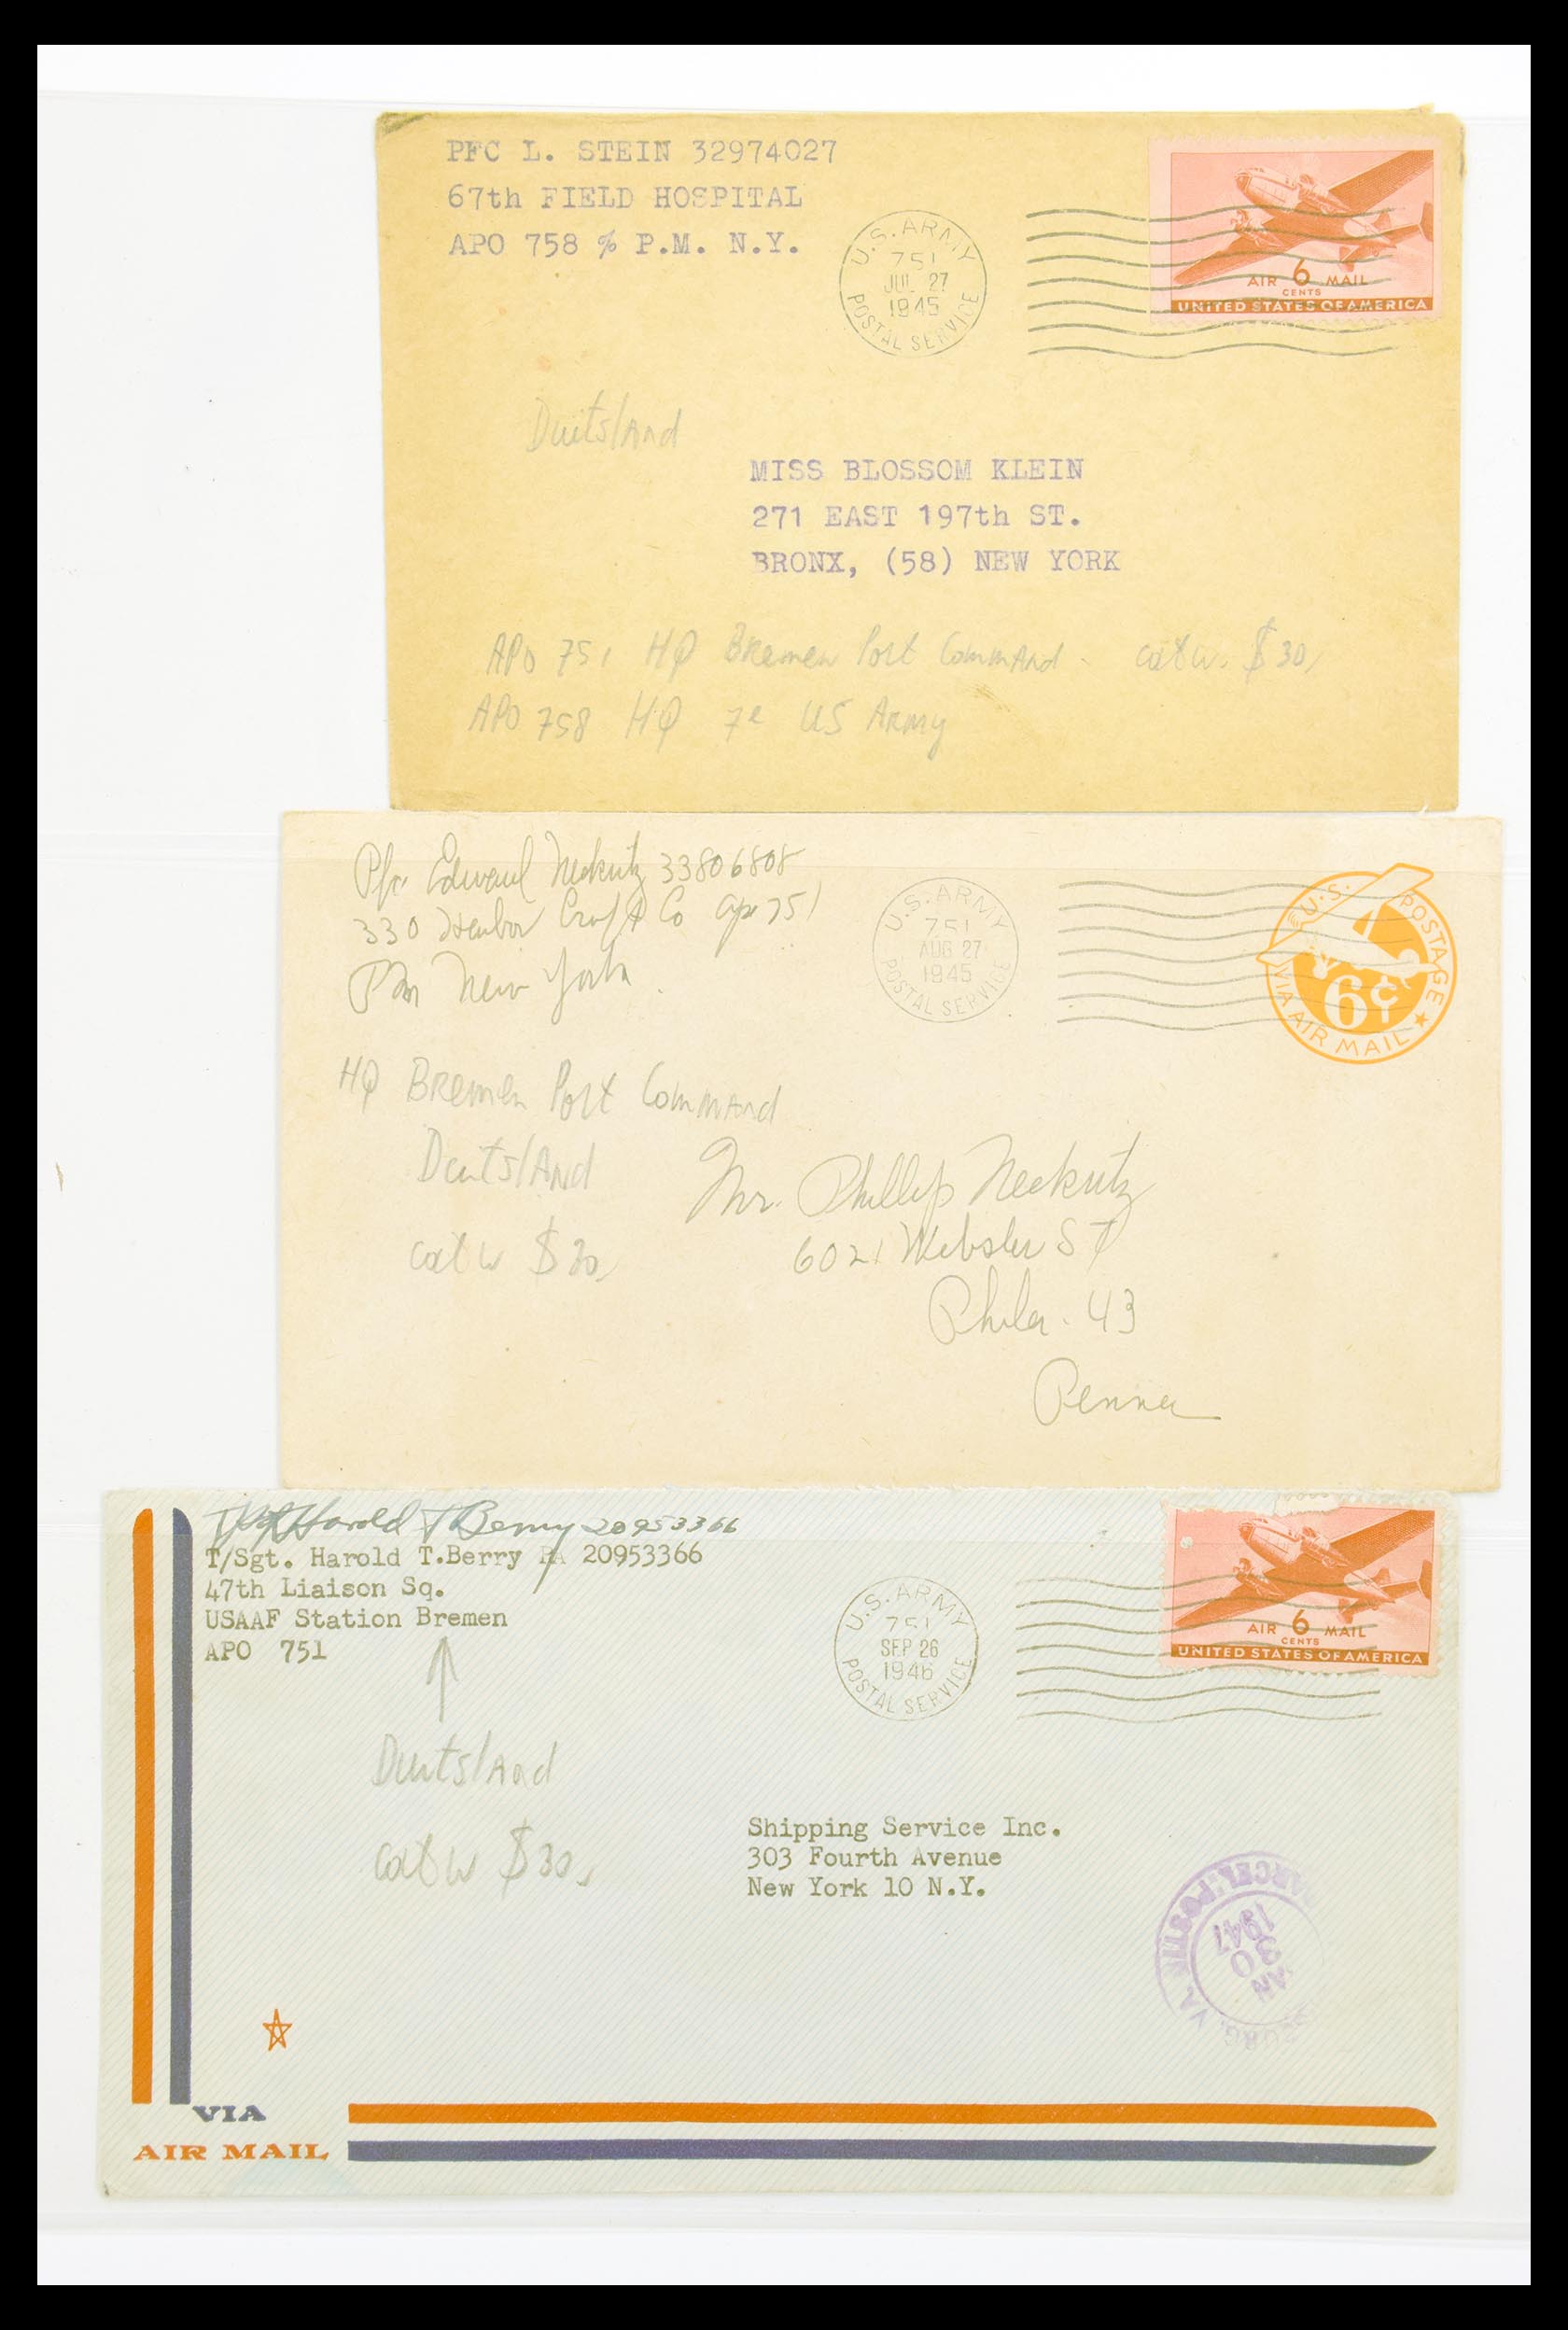 PFC L. STEIN 32974027
67th FIELD HOSPITAL
APO 758 % P.M. N.Y.
U.S. ARMY
751
JUL 27
1945
POSTAL SERVICE
AIR 6 MAIL
CENTS
UNITED STATES OF AMERICA
Duitsland
MISS BLOSSOM KLEIN
271 EAST 197th ST.
BRONX, (58) NEW YORK
APO 751 HQ Bremen Port Command - catw. $30,
APO 758 HQ 7e US Army
Pfc Edward Neckritz 33806808
330 Harbor Craft Co apo 751
PM New York
U.S. ARMY
751
AUG 27
1945
POSTAL SERVICE
U.S. POSTAGE
6¢
VIA AIR MAIL
HQ Bremen Port Command
Duitsland
catw $30,
Mr. Phillip Neckritz
6021 Webster St
Phila. 43
Penna
Harold T Berry 20953366
T/Sgt. Harold T.Berry RA 20953366
47th Liaison Sq.
USAAF Station Bremen
APO 751
U.S. ARMY
751
SEP 26
1946
POSTAL SERVICE
AIR 6 MAIL
CENTS
UNITED STATES OF AMERICA
Duitsland
catw $30,
Shipping Service Inc.
303 Fourth Avenue
New York 10 N.Y.
PARCEL POST
JAN
30
1947
VA.
VIA
AIR MAIL